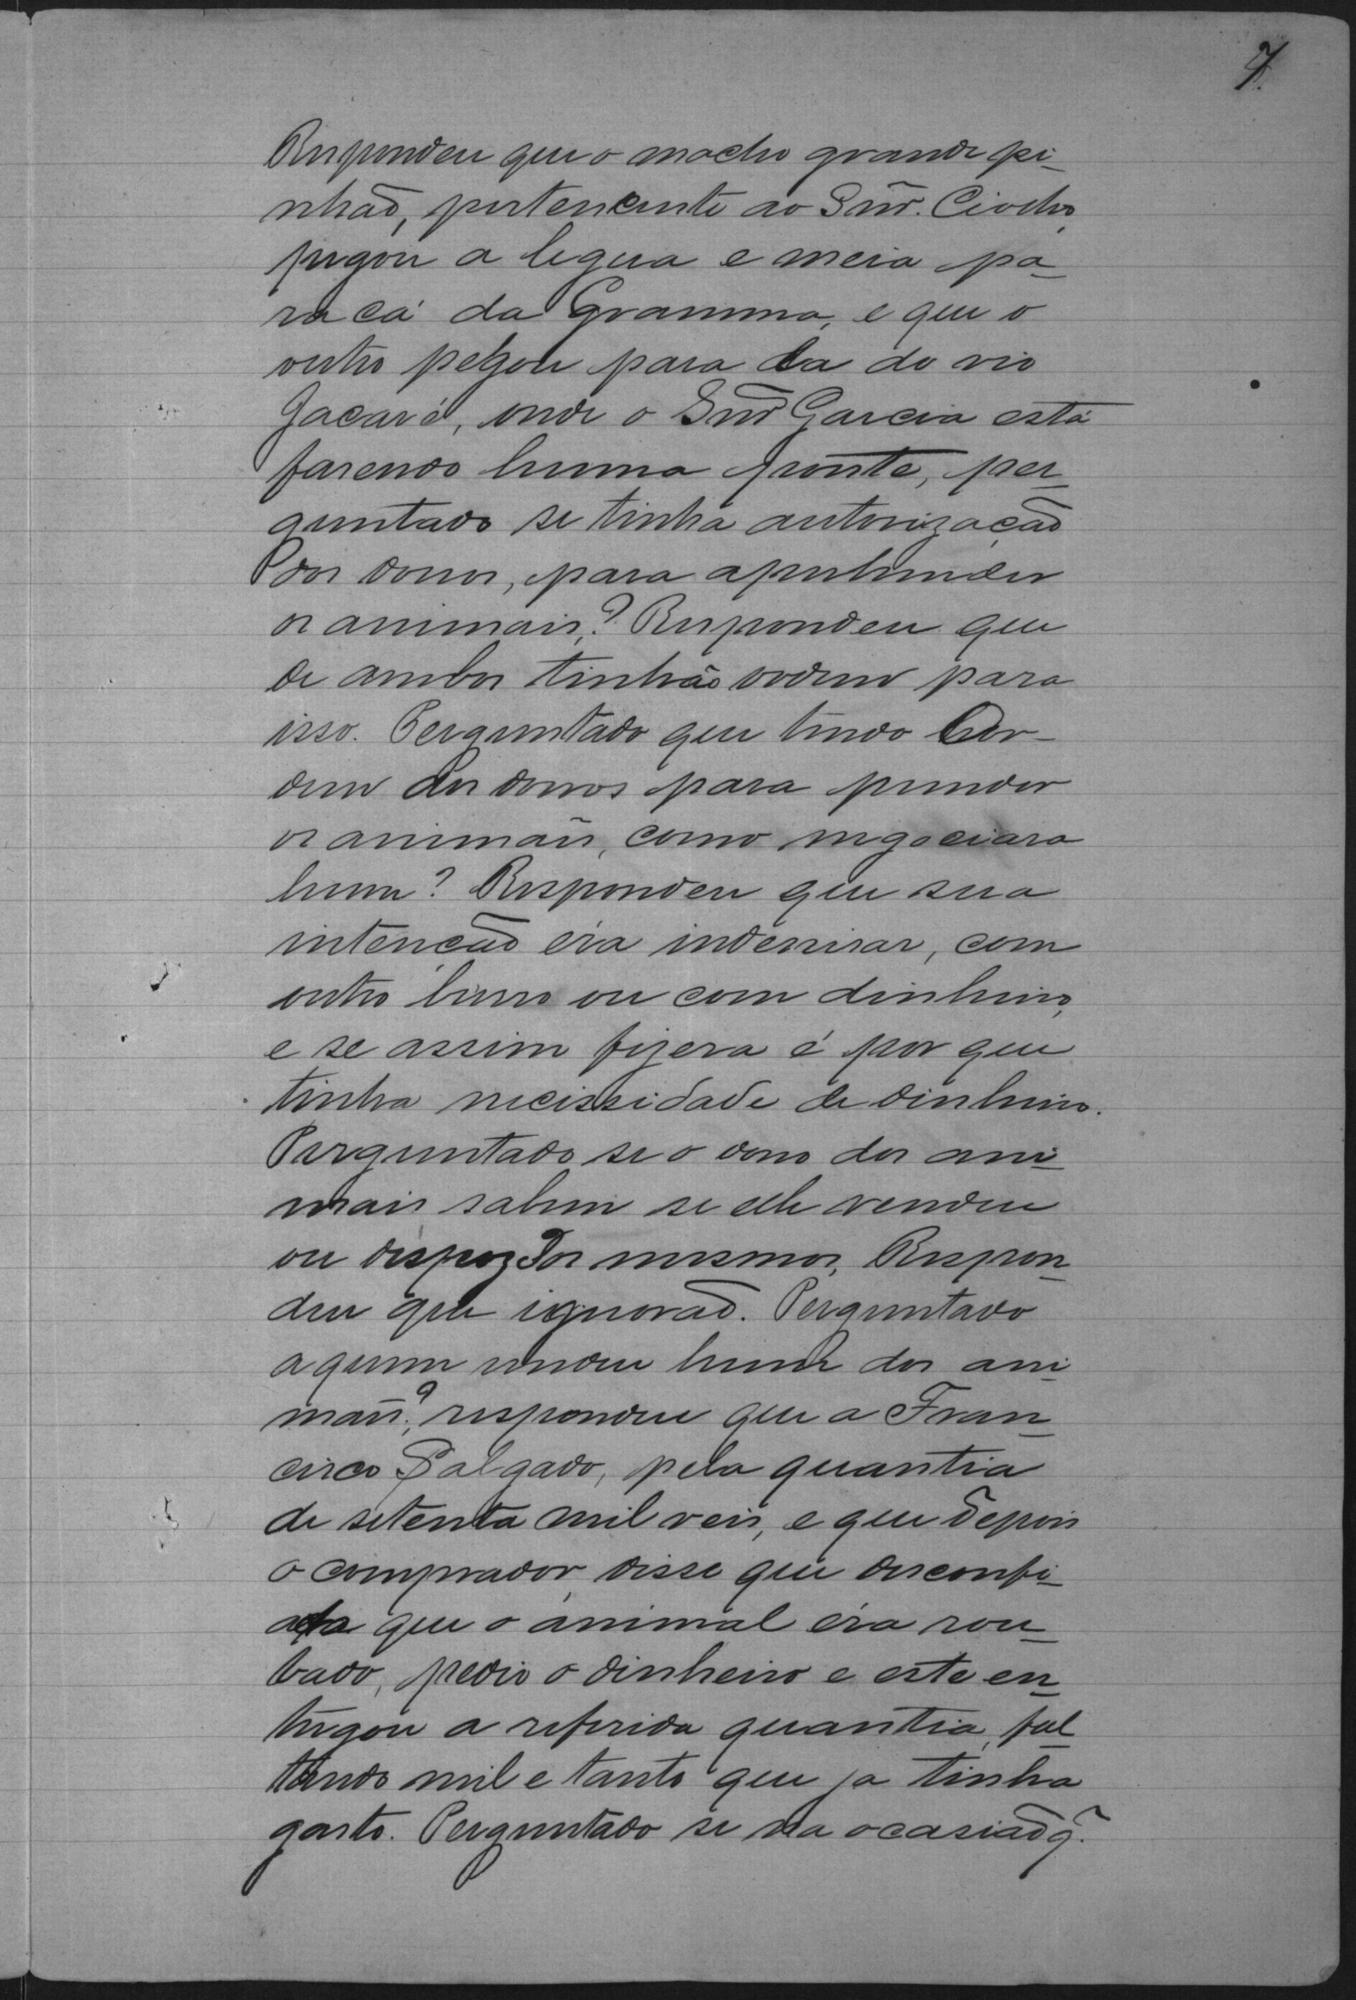 7.
Respondeu que o macho grande pi-
nhão, pertencente ao Snr.
pegou a legua e meia pa-
ra cá da Gramma, e que o
outro pegou para la do rio
Jacaré, onde o Snr Garcia está
fasendo huma ponte, per-
guntado se tinha autorização
dos donos, para aprehender
os animais? Respondeu que
de ambos tinhão ordem para
isso. Perguntado que tendo or-
dem dos donos para prender
os animais, como negociara
hum? Respondeu que sua
intenção éra indenisar, com
outro burro ou com dinheiro,
e se assim fizera é por que
tinha necissidade de dinheiro.
Perguntado se o dono dos ani-
mais sabem se elle vendeu
ou dispoz dos mesmos, Respon-
deu que ignorão. Perguntado
a quem vendeu hum dos ani-
mais?, respondeu que a Fran-
cisco Salgado, pela quantia
de setenta mil reis, e que depois
o comprador disse que desconfi-
ava que o animal éra rou-
bado, pedio o dinheiro e este en-
tregou a referida quantia, fal-
tando mil e tanto que ja tinha
gasto. Perguntado se na ocasião q.